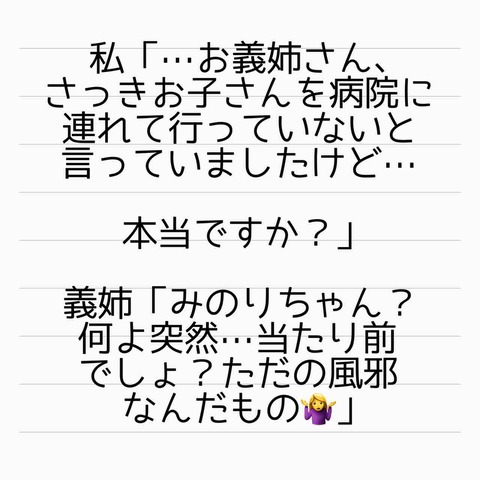 私「…お義姉さん、
さっきお子さんを病院に
連れて行っていないと
言っていましたけど…
本当ですか？」
義姉「みのりちゃん？
何よ突然…当たり前
でしょ？ただの風邪
なんだもの🤷‍♀️」